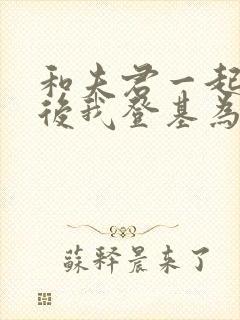 和夫君一起
後我登基為
蘇釋晨來了